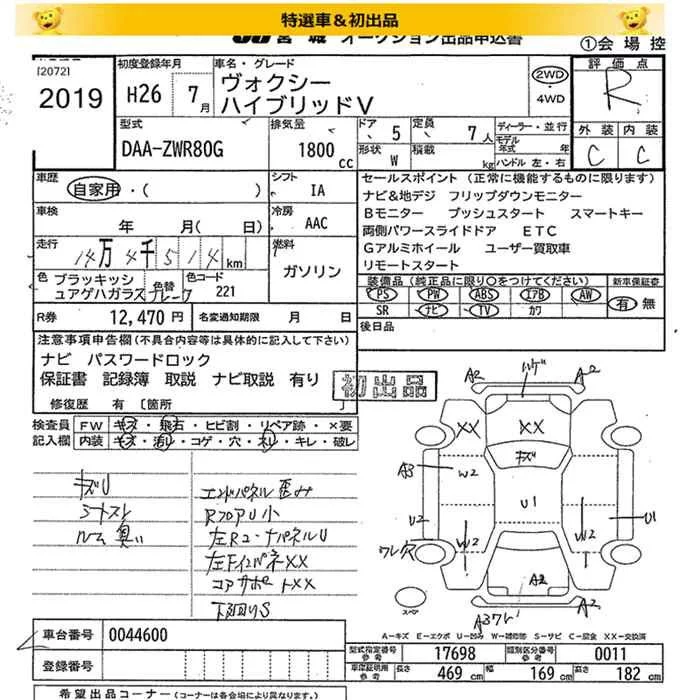 特選車＆初出品
JU宮城 オークション出品申込書
①会場控
[2072]
2019
初度登録年月
H26 7月
車名・グレード
ヴォクシー
ハイブリッドV
2WD
・
4WD
評価点
R
外装 内装
C C
型式
DAA-ZWR80G
排気量
1800cc
ドア 5
定員 7人
形状 W
積載 kg
ディーラー・並行
モデル年式 年
ハンドル 左・右
車歴
自家用・( )
シフト
IA
車検
年 月(日)
冷房
AAC
走行
14万4千514km
燃料
ガソリン
色
ブラッキッシュアゲハガラスフレーク
色替
色コード
221
R券 12,470円
名変通知期限 月 日
セールスポイント (正常に機能するものに限ります)
ナビ&地デジ フリップダウンモニター
Bモニター プッシュスタート スマートキー
両側パワースライドドア ETC
Gアルミホイール ユーザー買取車
リモートスタート
装備品(純正品に限り○をつけてください)
新車保証書
PS PW ABS エアB AW
有・無
SR ナビ TV カワ
後日品
注意事項申告欄(不具合内容等は具体的に記入して下さい)
ナビ パスワードロック
保証書 記録簿 取説 ナビ取説 有り
初出品
修復歴 有 [箇所
検査員記入欄
FW キズ・飛石・ヒビ割・リペア跡・×要
内装 キズ・汚れ・コゲ・穴・スレ・キレ・破レ
キズU
シートスレ
ルーム臭い
エンドパネル歪み
RフロアU小
左Rコーナーパネル U
左FインパネXX
コアサポートXX
下廻りS
A2
ハゲ
A2
XX
XX
キズ
A3
W2
U1
U2
W2
W2
U1
ワレ穴
A2
A2
A3ワレ
スペア
A-キズ E-エクボ U-凹み W-補修跡 S-サビ C-腐食 XX-交換済
車台番号 0044600
登録番号
型式指定番号 参考 17698
類別区分番号 参考 0011
車庫証明用 参考 長さ 469cm 幅 169cm 高さ 182cm
希望出品コーナー(コーナーは各会場により異なります。)